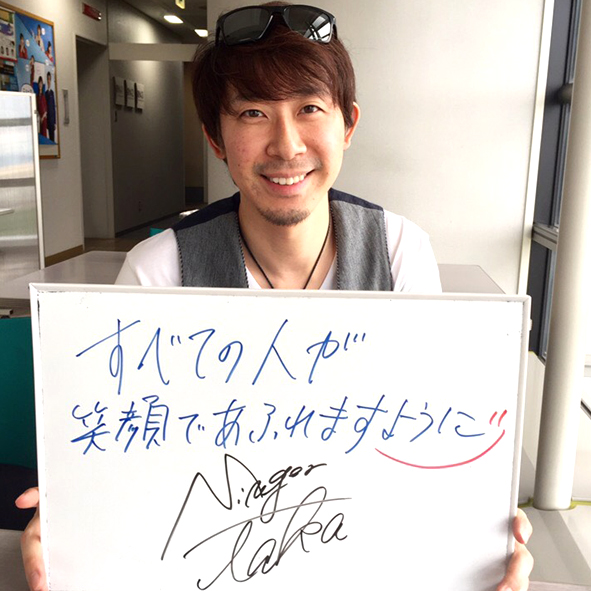 すべての人が
笑顔であふれますように
Taka